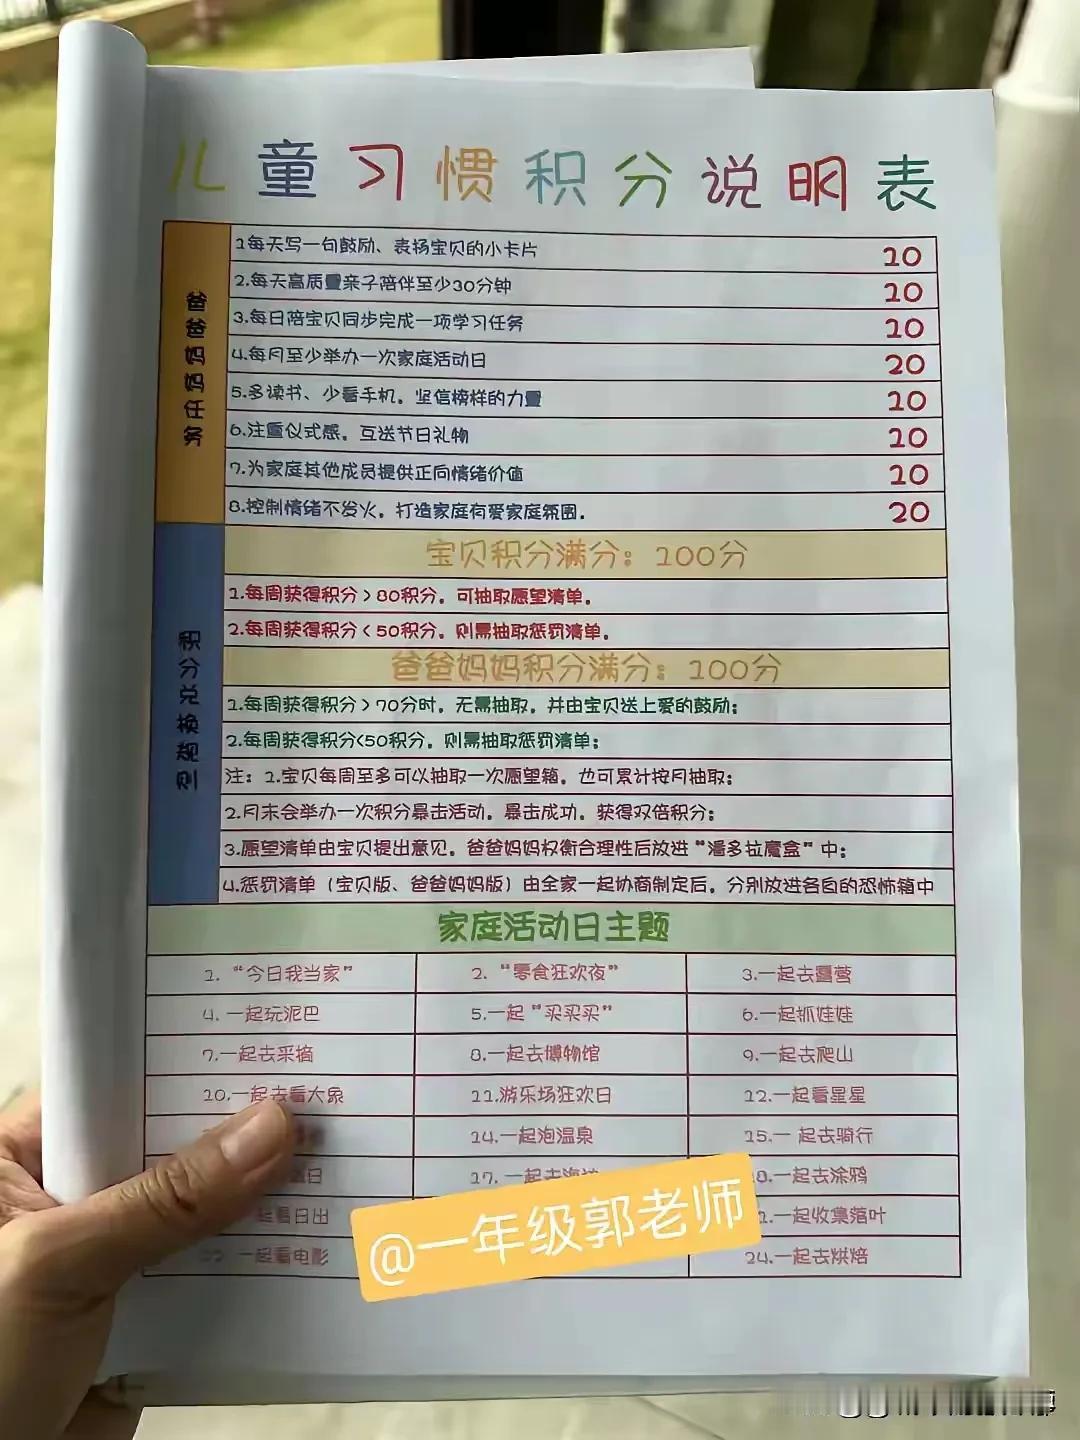 儿童习惯积分说明表
爸爸妈妈任务
1每天写一句鼓励、表扬宝贝的小卡片 10
2.每天高质量亲子陪伴至少30分钟 10
3.每日陪宝贝同步完成一项学习任务 10
4.每月至少举办一次家庭活动日 20
5.多读书、少看手机，坚信榜样的力量 10
6.注重仪式感，互送节日礼物 10
7.为家庭其他成员提供正向情绪价值 10
8.控制情绪不发火，打造家庭有爱家庭氛围。 20
积分兑换规则
宝贝积分满分：100分
1.每周获得积分>80积分，可抽取愿望清单。
2.每周获得积分<50积分，则需抽取惩罚清单。
爸爸妈妈积分满分：100分
1.每周获得积分>70分时，无需抽取，并由宝贝送上爱的鼓励；
2.每周获得积分<50积分，则需抽取惩罚清单；
注：1.宝贝每周至多可以抽取一次愿望箱，也可累计按月抽取；
2.月末会举办一次积分暴击活动，暴击成功，获得双倍积分；
3.愿望清单由宝贝提出意见，爸爸妈妈权衡合理性后放进“潘多拉魔盒”中；
4.惩罚清单（宝贝版、爸爸妈妈版）由全家一起协商制定后，分别放进各自的恐怖箱中
家庭活动日主题
1.“今日我当家” 2.“零食狂欢夜” 3.一起去露营
4.一起玩泥巴 5.一起“买买买” 6.一起抓娃娃
7.一起去采摘 8.一起去博物馆 9.一起去爬山
10.一起去看大象 11.游乐场狂欢日 12.一起看星星
14.一起泡温泉 15.一起去骑行
日 17.一起去海 8.一起去涂鸦
起看日出 1.一起收集落叶
22 一起看电影 24.一起去烘焙
@一年级郭老师